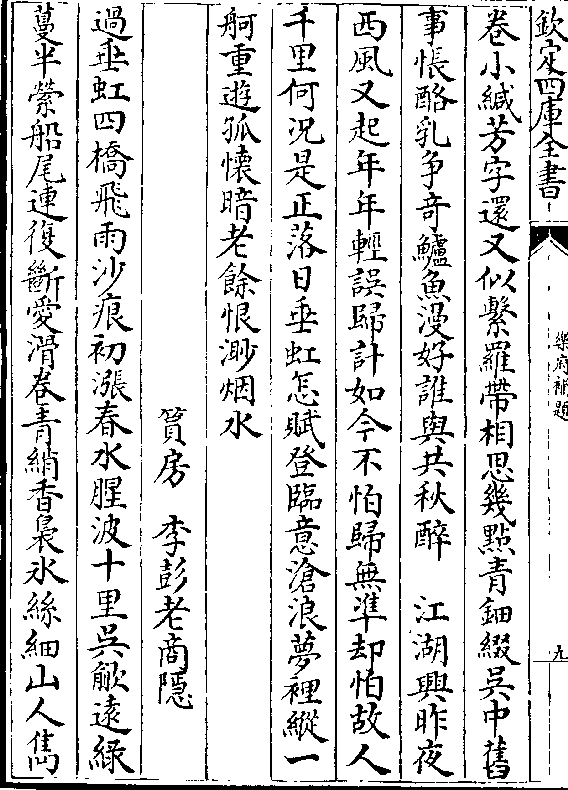 欽定四庫全書
樂府補題
九
卷小緘芳字還又似繫羅帶相思幾點青鈿綴吳中舊
事悵酪乳争奇鱸魚漫好誰與共秋醉　江湖興昨夜
西風又起年年輕誤歸計如今不怕歸無準却怕故人
千里何况是正落日垂虹怎賦登臨意滄浪夢裡縱一
舸重遊孤懷暗老餘恨渺烟水
篔房　李彭老商隱
過垂虹四橋飛雨沙痕初漲春水腥波十里吳歈遠綠
蔓半縈船尾連復斷愛滑卷青綃香裊氷絲細山人雋